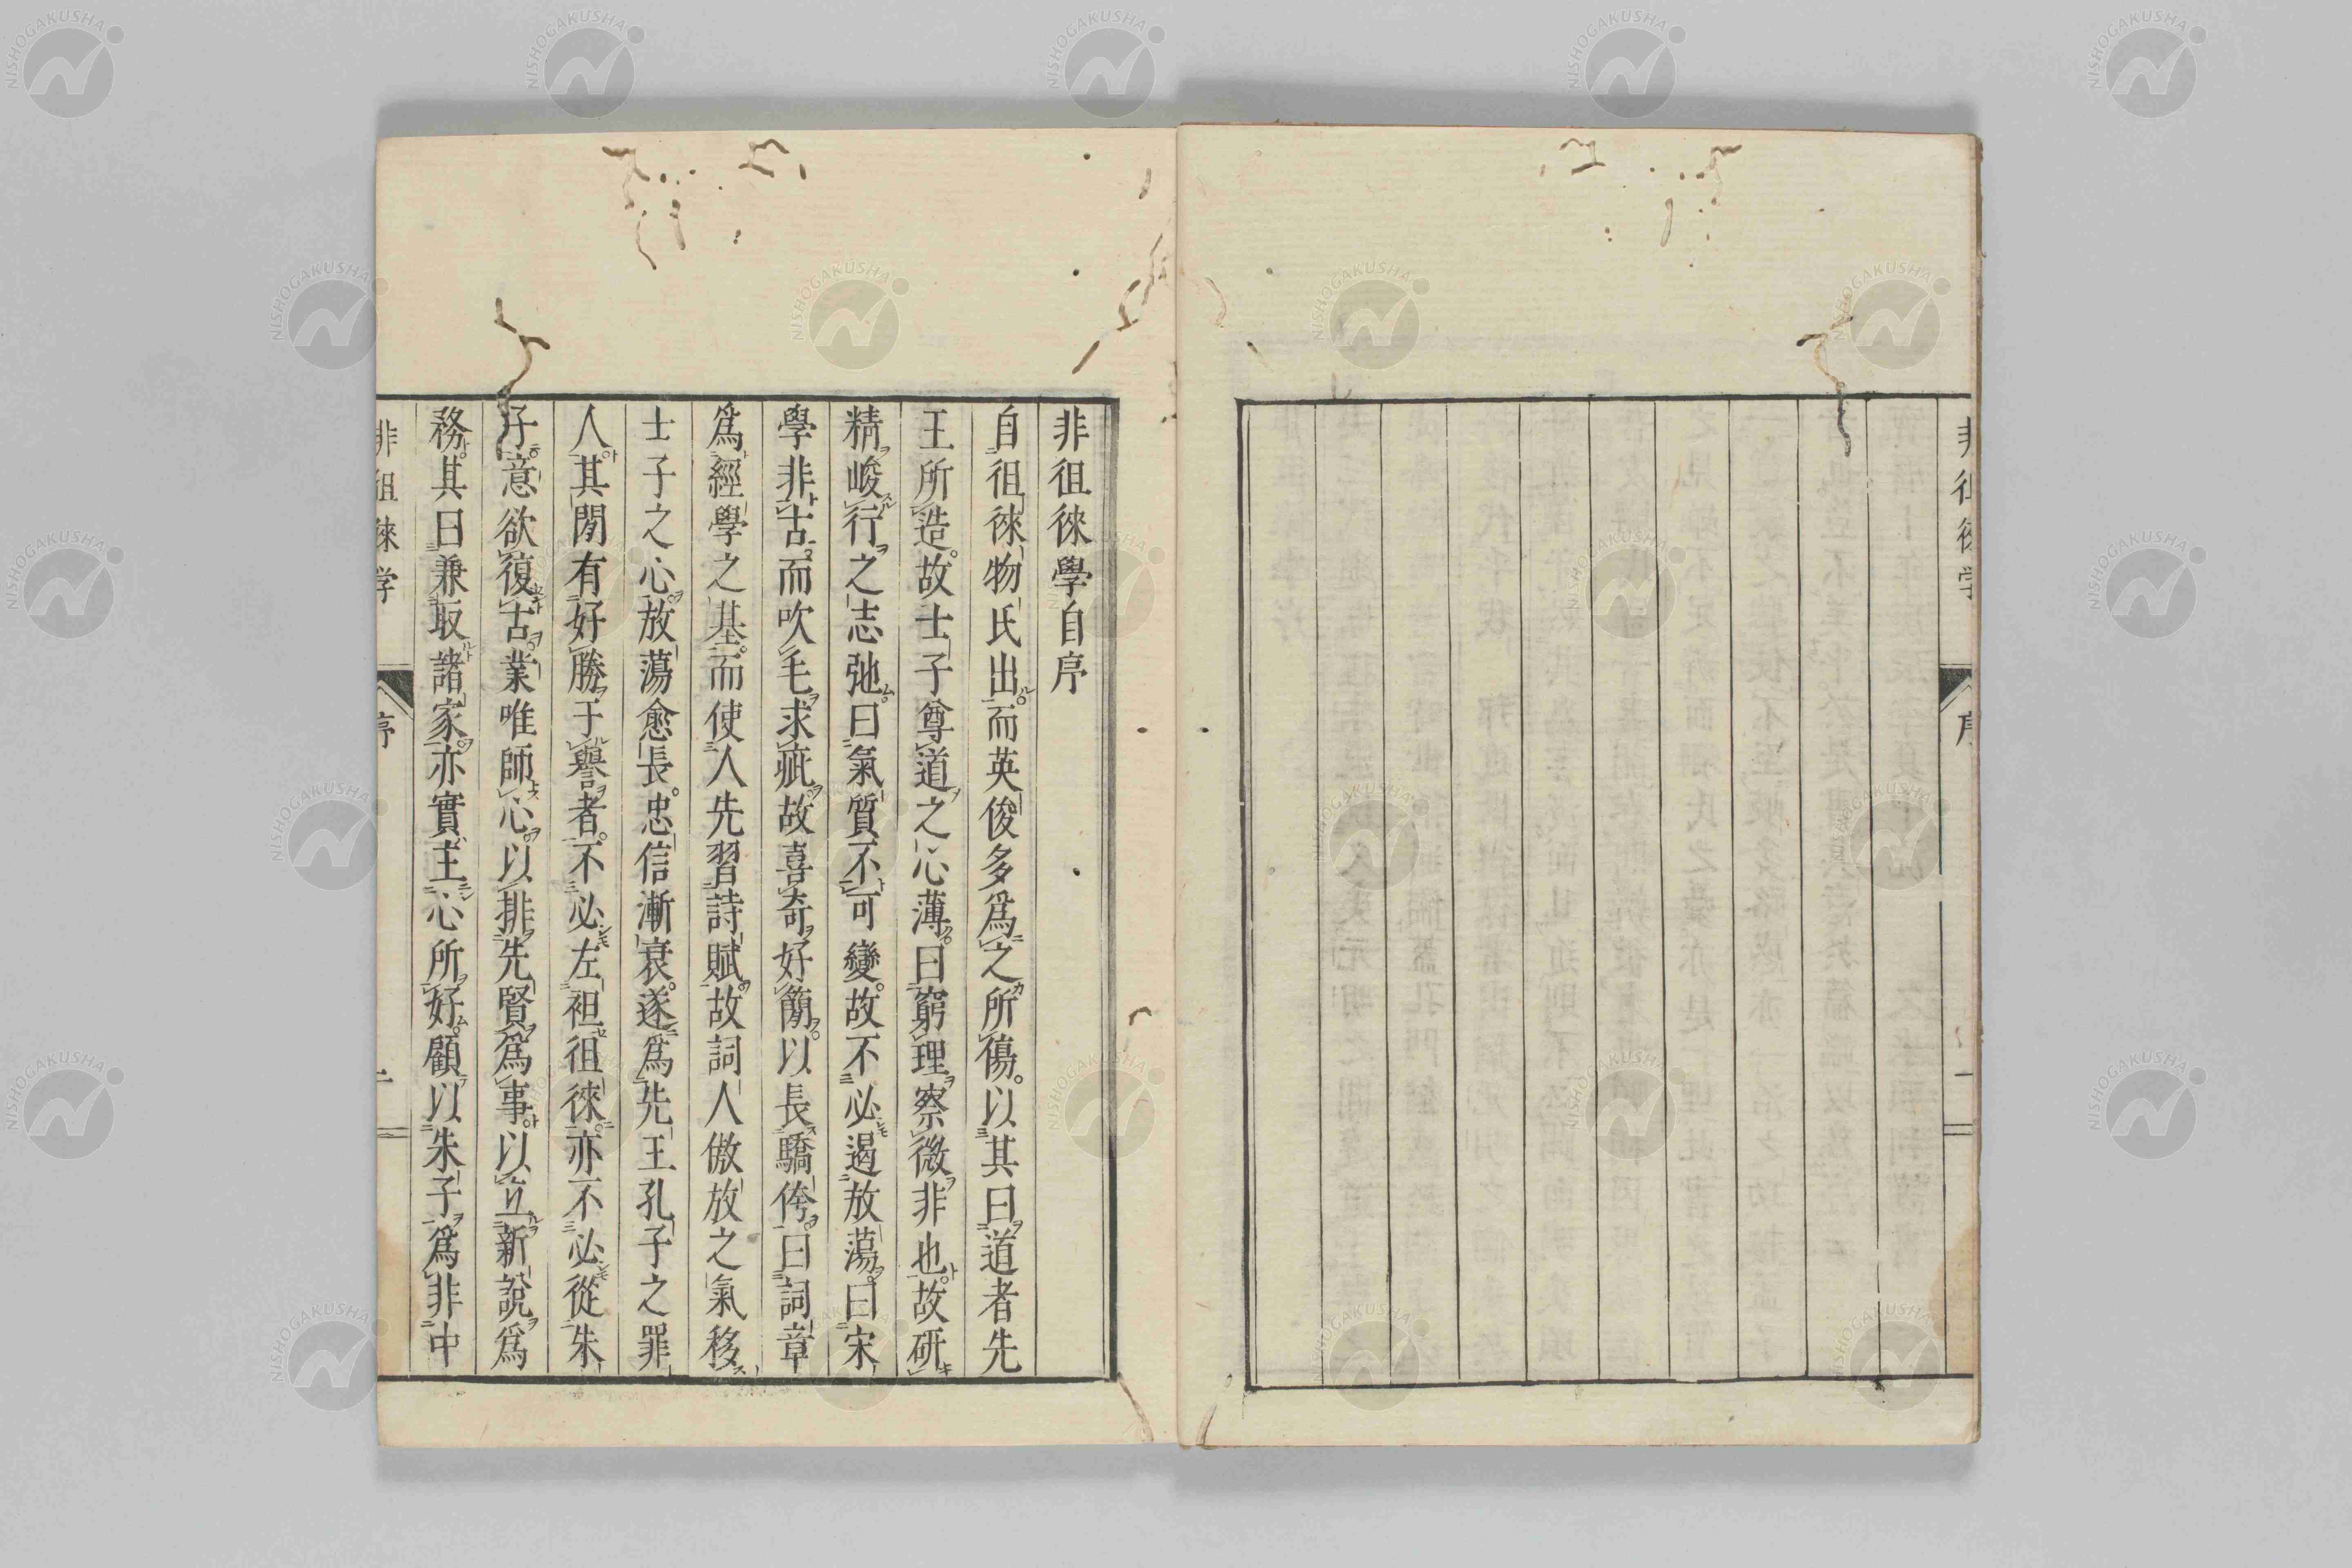 非徂徠學自序
自徂徠物氏出而英俊多爲之所傷以其曰道者先
王所造故士子尊道之心薄曰窮理察微非也故研
精峻行之志弛曰氣質不可變故不必遏放蕩曰宋
學非古而吹毛求疵故喜奇好簡以長驕侉曰詞章
爲經學之基而使人先習詩賦故詞人傲放之氣移
士子之心放蕩愈長忠信漸衰遂爲先王孔子之罪
人其閒有好勝于譽者不必左袒徂徠亦不必從朱
子意欲復古業唯師心以排先賢爲事以立新說爲
務其曰兼取諸家亦實主心所好顧以朱子爲非中
非徂徠学
序